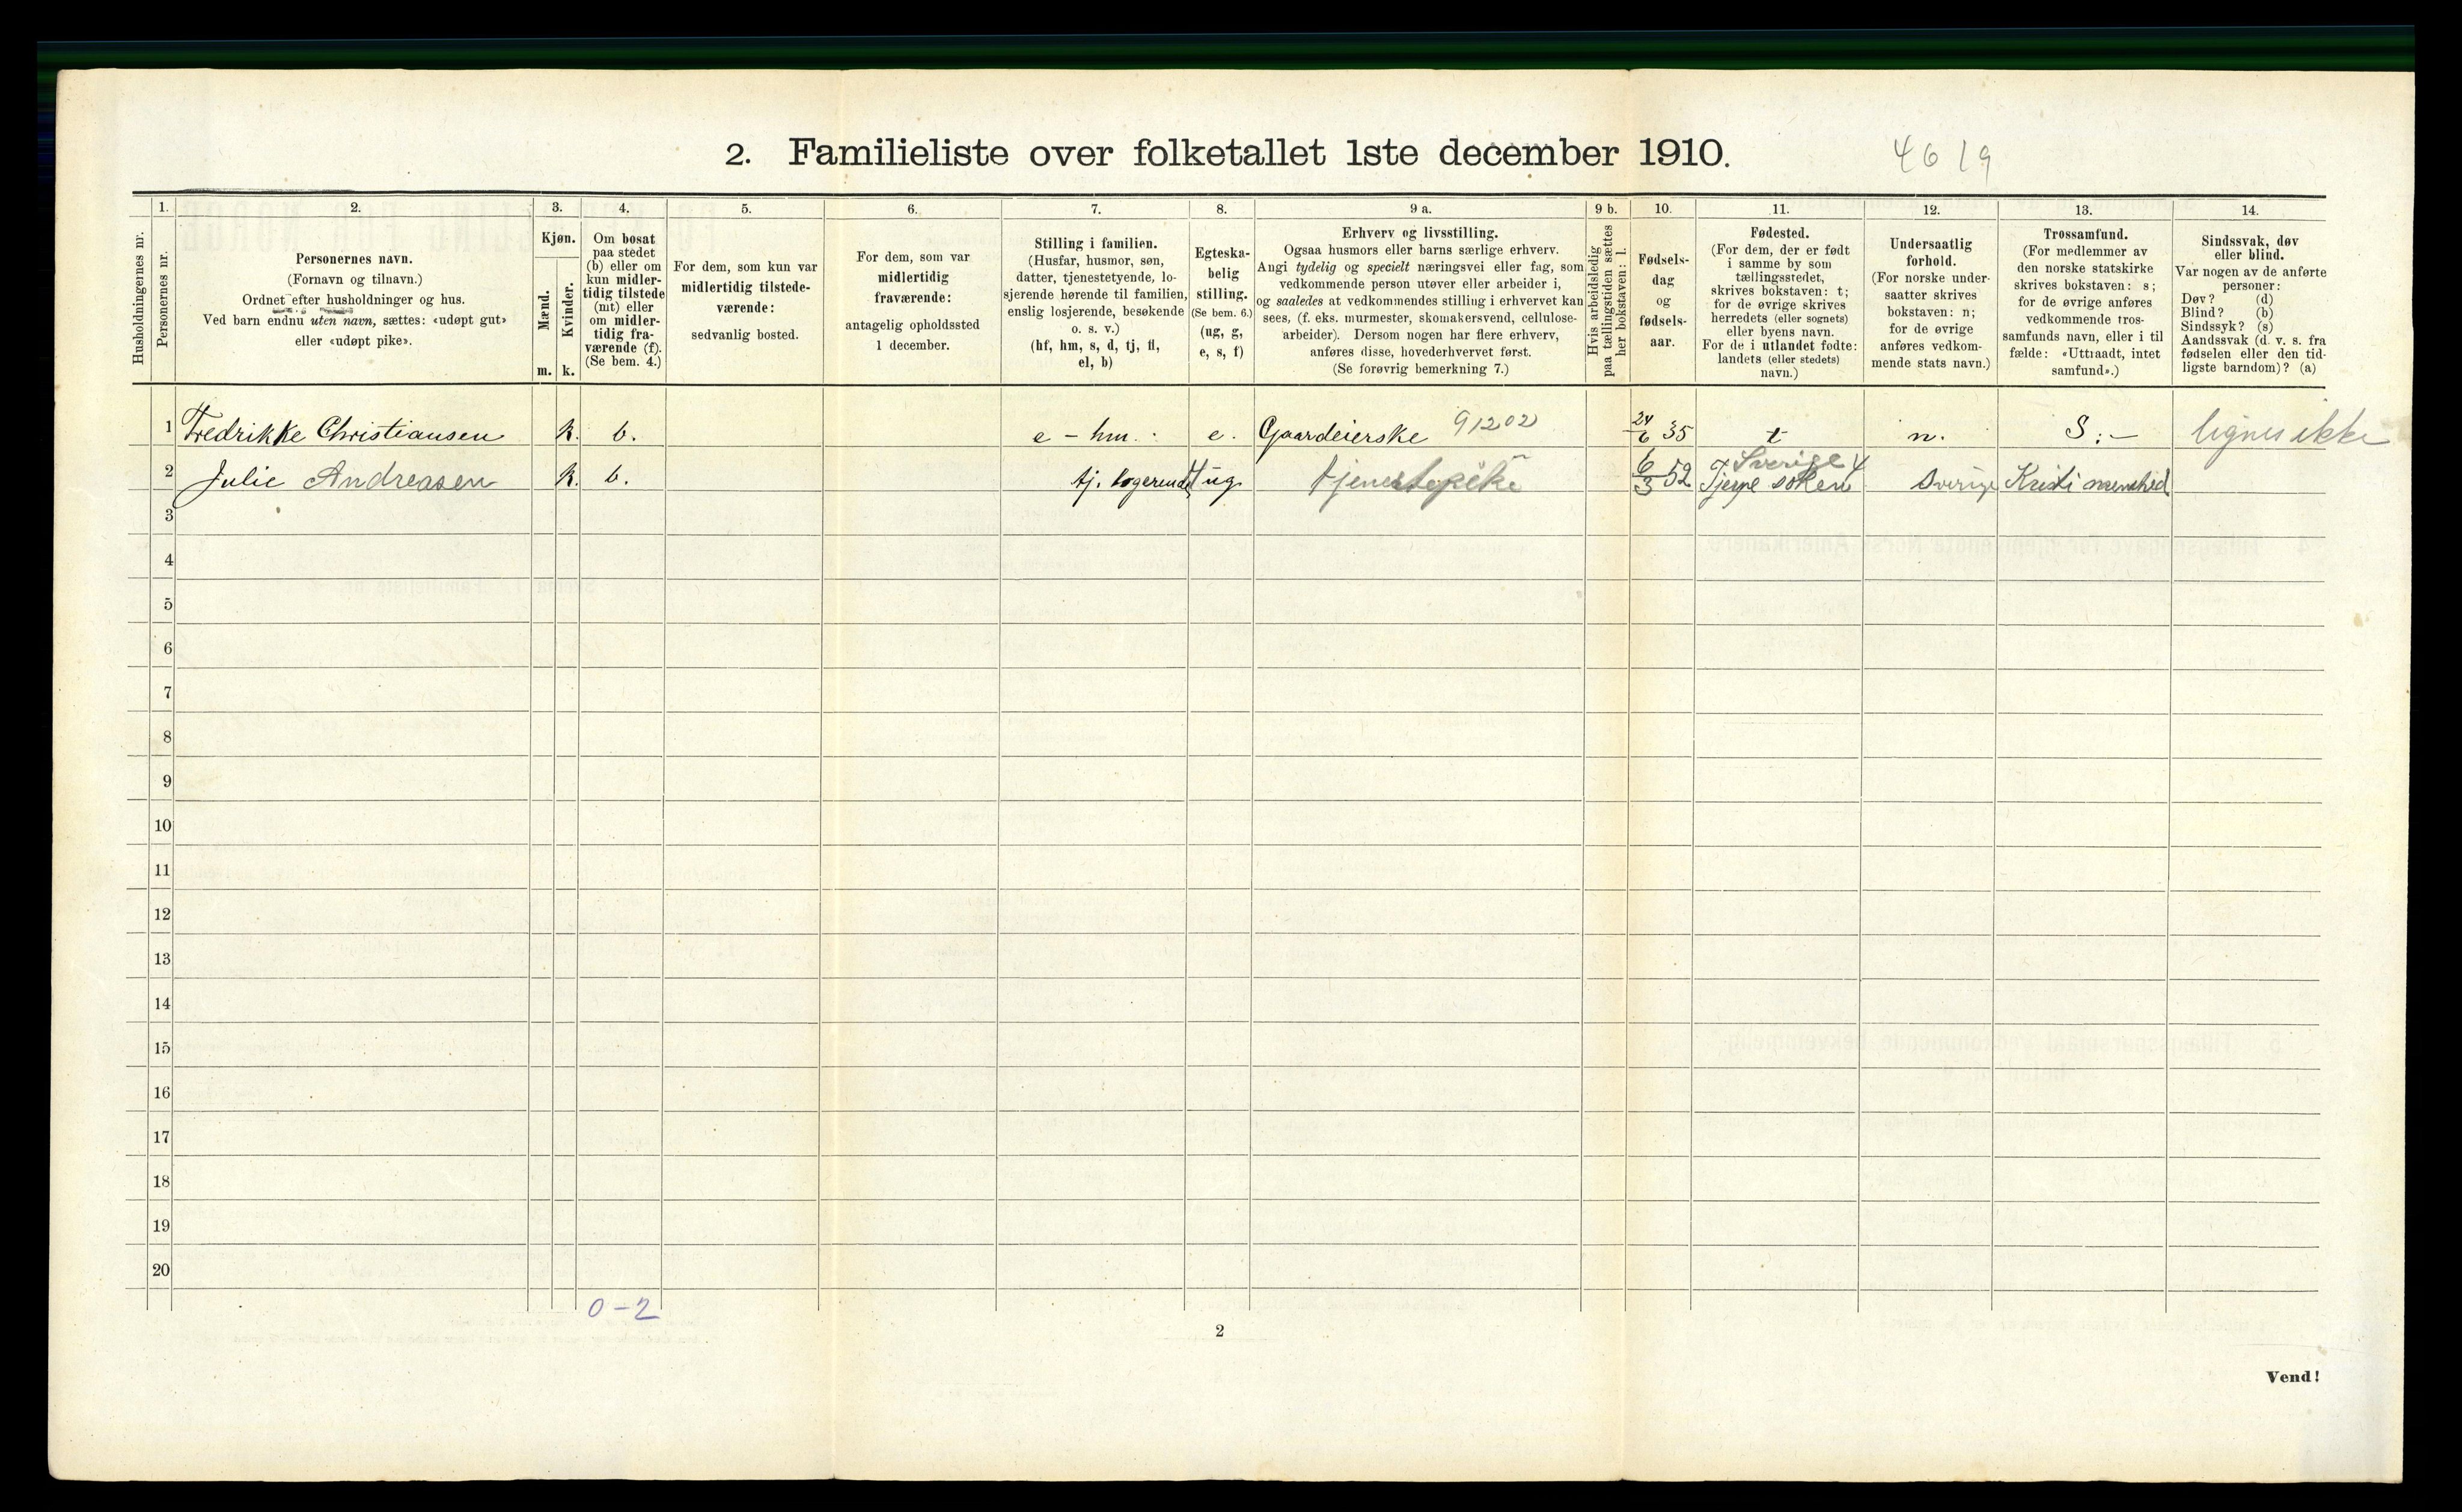 2. Familieliste over folketallet 1ste december 1910.
4619
Husholdningernes nr.
1.
Personernes nr.
2.
Personernes navn.
(Fornavn og tilnavn.)
Ordnet efter husholdninger og hus.
Ved barn endnu uten navn, sættes: «udøpt gut»
eller «udøpt pike».
3.
Kjøn.
Mænd.
Kvinder.
m. k.
4.
Om bosat
paa stedet
(b) eller om
kun midler-
tidig tilstede
(mt) eller
om midler-
tidig fra-
værende (f).
(Se bem. 4.)
5.
For dem, som kun var
midlertidig tilstede-
værende:
sedvanlig bosted.
6.
For dem, som var
midlertidig
fraværende:
antagelig opholdssted
1 december.
7.
Stilling i familien.
(Husfar, husmor, søn,
datter, tjenestetyende, lo-
sjerende hørende til familien,
enslig losjerende, besøkende
o. s. v.)
(hf, hm, s, d, tj, fl,
el, b)
8.
Egteska-
belig
stilling.
(Se bem. 6.)
(ug, g,
e, s, f)
9 a.
Erhverv og livsstilling.
Ogsaa husmors eller barns særlige erhverv.
Angi tydelig og specielt næringsvei eller fag, som
vedkommende person utøver eller arbeider i,
og saaledes at vedkommendes stilling i erhvervet kan
sees, (f. eks. murmester, skomakersvend, cellulose-
arbeider). Dersom nogen har flere erhverv,
anføres disse, hovederhvervet først.
(Se forøvrig bemerkning 7.)
9 b.
Hvis arbeidsledig
paa tællingstiden sættes
her bokstaven: l.
10.
Fødsels-
dag
og
fødsels-
aar.
11.
Fødested.
(For dem, der er født
i samme by som
tællingsstedet,
skrives bokstaven: t;
for de øvrige skrives
herredets (eller sognets)
eller byens navn.
For de i utlandet fødte:
landets (eller stedets)
navn.)
12.
Undersaatlig
forhold.
(For norske under-
saatter skrives
bokstaven: n;
for de øvrige
anføres vedkom-
mende stats navn.)
13.
Trossamfund.
(For medlemmer av
den norske statskirke
skrives bokstaven: s;
for de øvrige anføres
vedkommende tros-
samfunds navn, eller i til
fælde: «Uttraadt, intet
samfund».)
14.
Sindssvak, døv
eller blind.
Var nogen av de anførte
personer:
Døv? (d)
Blind? (b)
Sindssyk? (s)
Aandssvak (d. v. s. fra
fødselen eller den tid-
ligste barndom)? (a)
1 Fredrikke Christiansen k. b. e - hm. e. Gaardeierske 91202 24/6 35 t n. S:- lignes ikke
2 Julie Andreasen k. b. tj. logerende ug. tjenestepike 6/3 52 Sverige 4 soken Sverige
3
4
5
6
7
8
9
10
11
12
13
14
15
16
17
18
19
20
0-2
2
Vend!